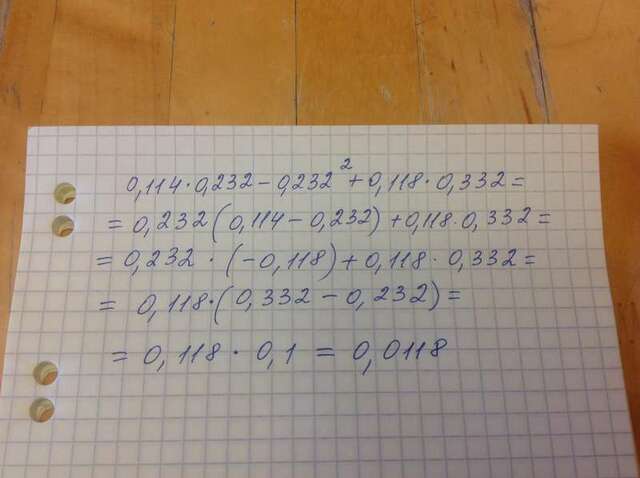 0,114·0,232-0,232²+0,118·0,332=
=0,232(0,114-0,232)+0,118·0,332=
=0,232·(-0,118)+0,118·0,332=
=0,118·(0,332-0,232)=
=0,118·0,1=0,0118